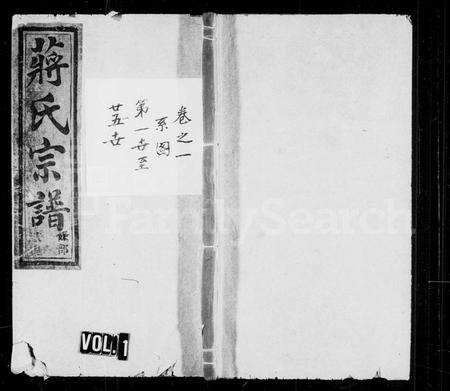 蔣氏宗譜
卷之一
系图
第一世至
廿五世
VOL.1
FamilySearch